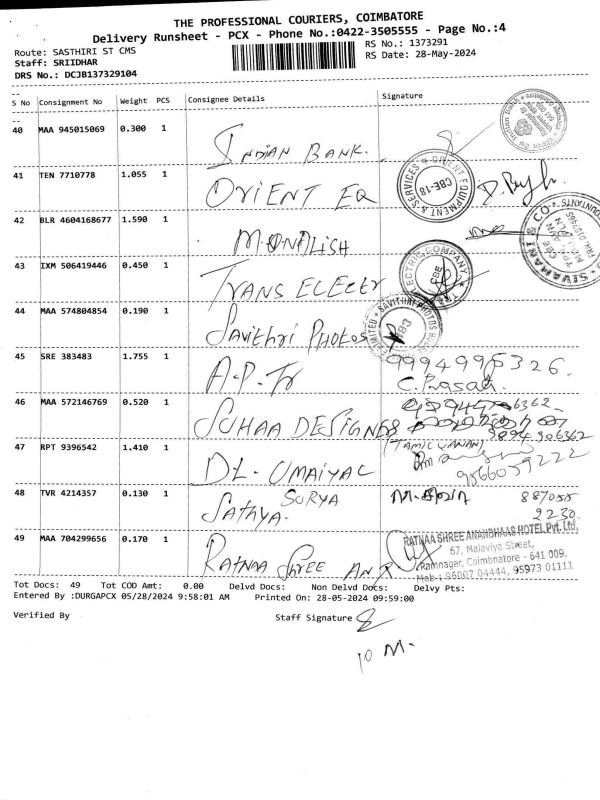 THE PROFESSIONAL COURIERS, COIMBATORE
Delivery Runsheet - PCX - Phone No.:0422-3505555 - Page No.:4
Route: SASTHIRI ST CMS
RS No.: 1373291
Staff: SRIIDHAR
RS Date: 28-May-2024
DRS No.: DCJB137329104
S No Consignment No Weight PCS Consignee Details Signature
40 MAA 945015069 0.300 1 INDIAN BANK.
41 TEN 7710778 1.055 1 ORIENT EQ
42 BLR 4604168677 1.590 1 MONALISH
43 IXM 506419446 0.450 1 TRANS ELECTr
44 MAA 574804854 0.190 1 Savithri PHOTOS
45 SRE 383483 1.755 1 A.P.Tr 9994995326.
C. Prasad.
46 MAA 572146769 0.520 1 SUHAA DESIGNES
9894906362
47 RPT 9396542 1.410 1 DL. UMAIYAL (TAMILVANAN)
9566059222
48 TVR 4214357 0.130 1 SATHYA. SURYA 887055
2230
49 MAA 704299656 0.170 1 RATNAA Shree AN
RATNAA SHREE ANANDHAAS HOTEL Pvt. Ltd,
67, Malaviya Street,
Ramnagar, Coimbnatore - 641 009.
Mob : 96007 04444, 95973 01111
Tot Docs: 49 Tot COD Amt: 0.00 Delvd Docs: Non Delvd Docs: Delvy Pts:
Entered By :DURGAPCX 05/28/2024 9:58:01 AM Printed On: 28-05-2024 09:59:00
Verified By Staff Signature
10 M.